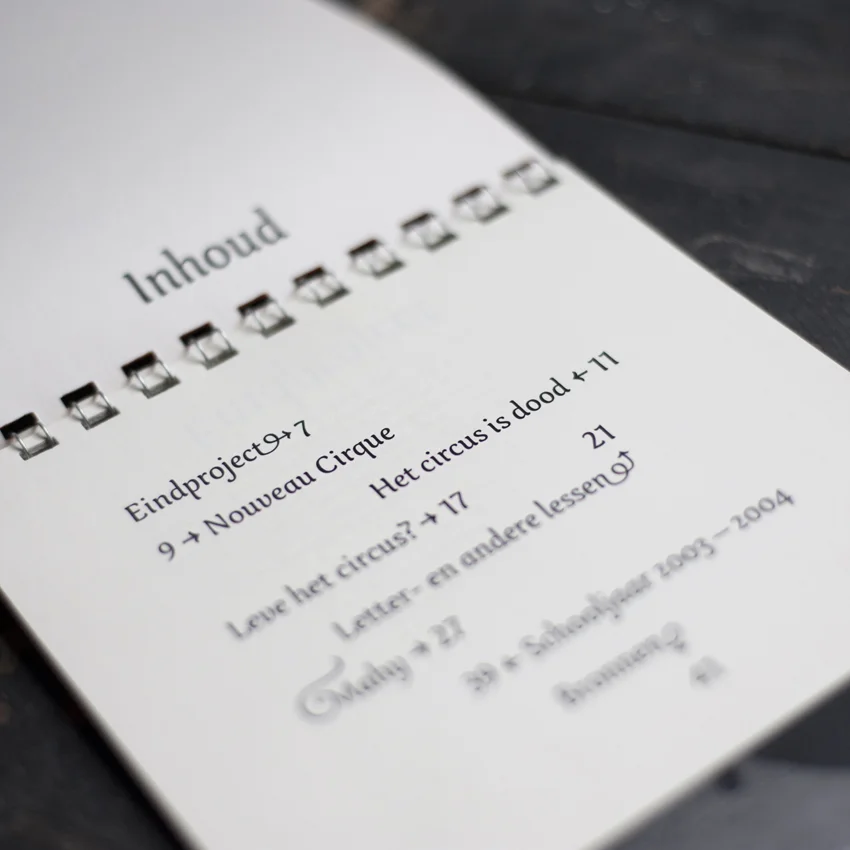 Inhoud
Eindproject → 7
9 → Nouveau Cirque
Het circus is dood ← 11
Leve het circus? → 17
21
Letter- en andere lessen
Mahy → 27
39 ← Schooljaar 2003 – 2004
Bronnen